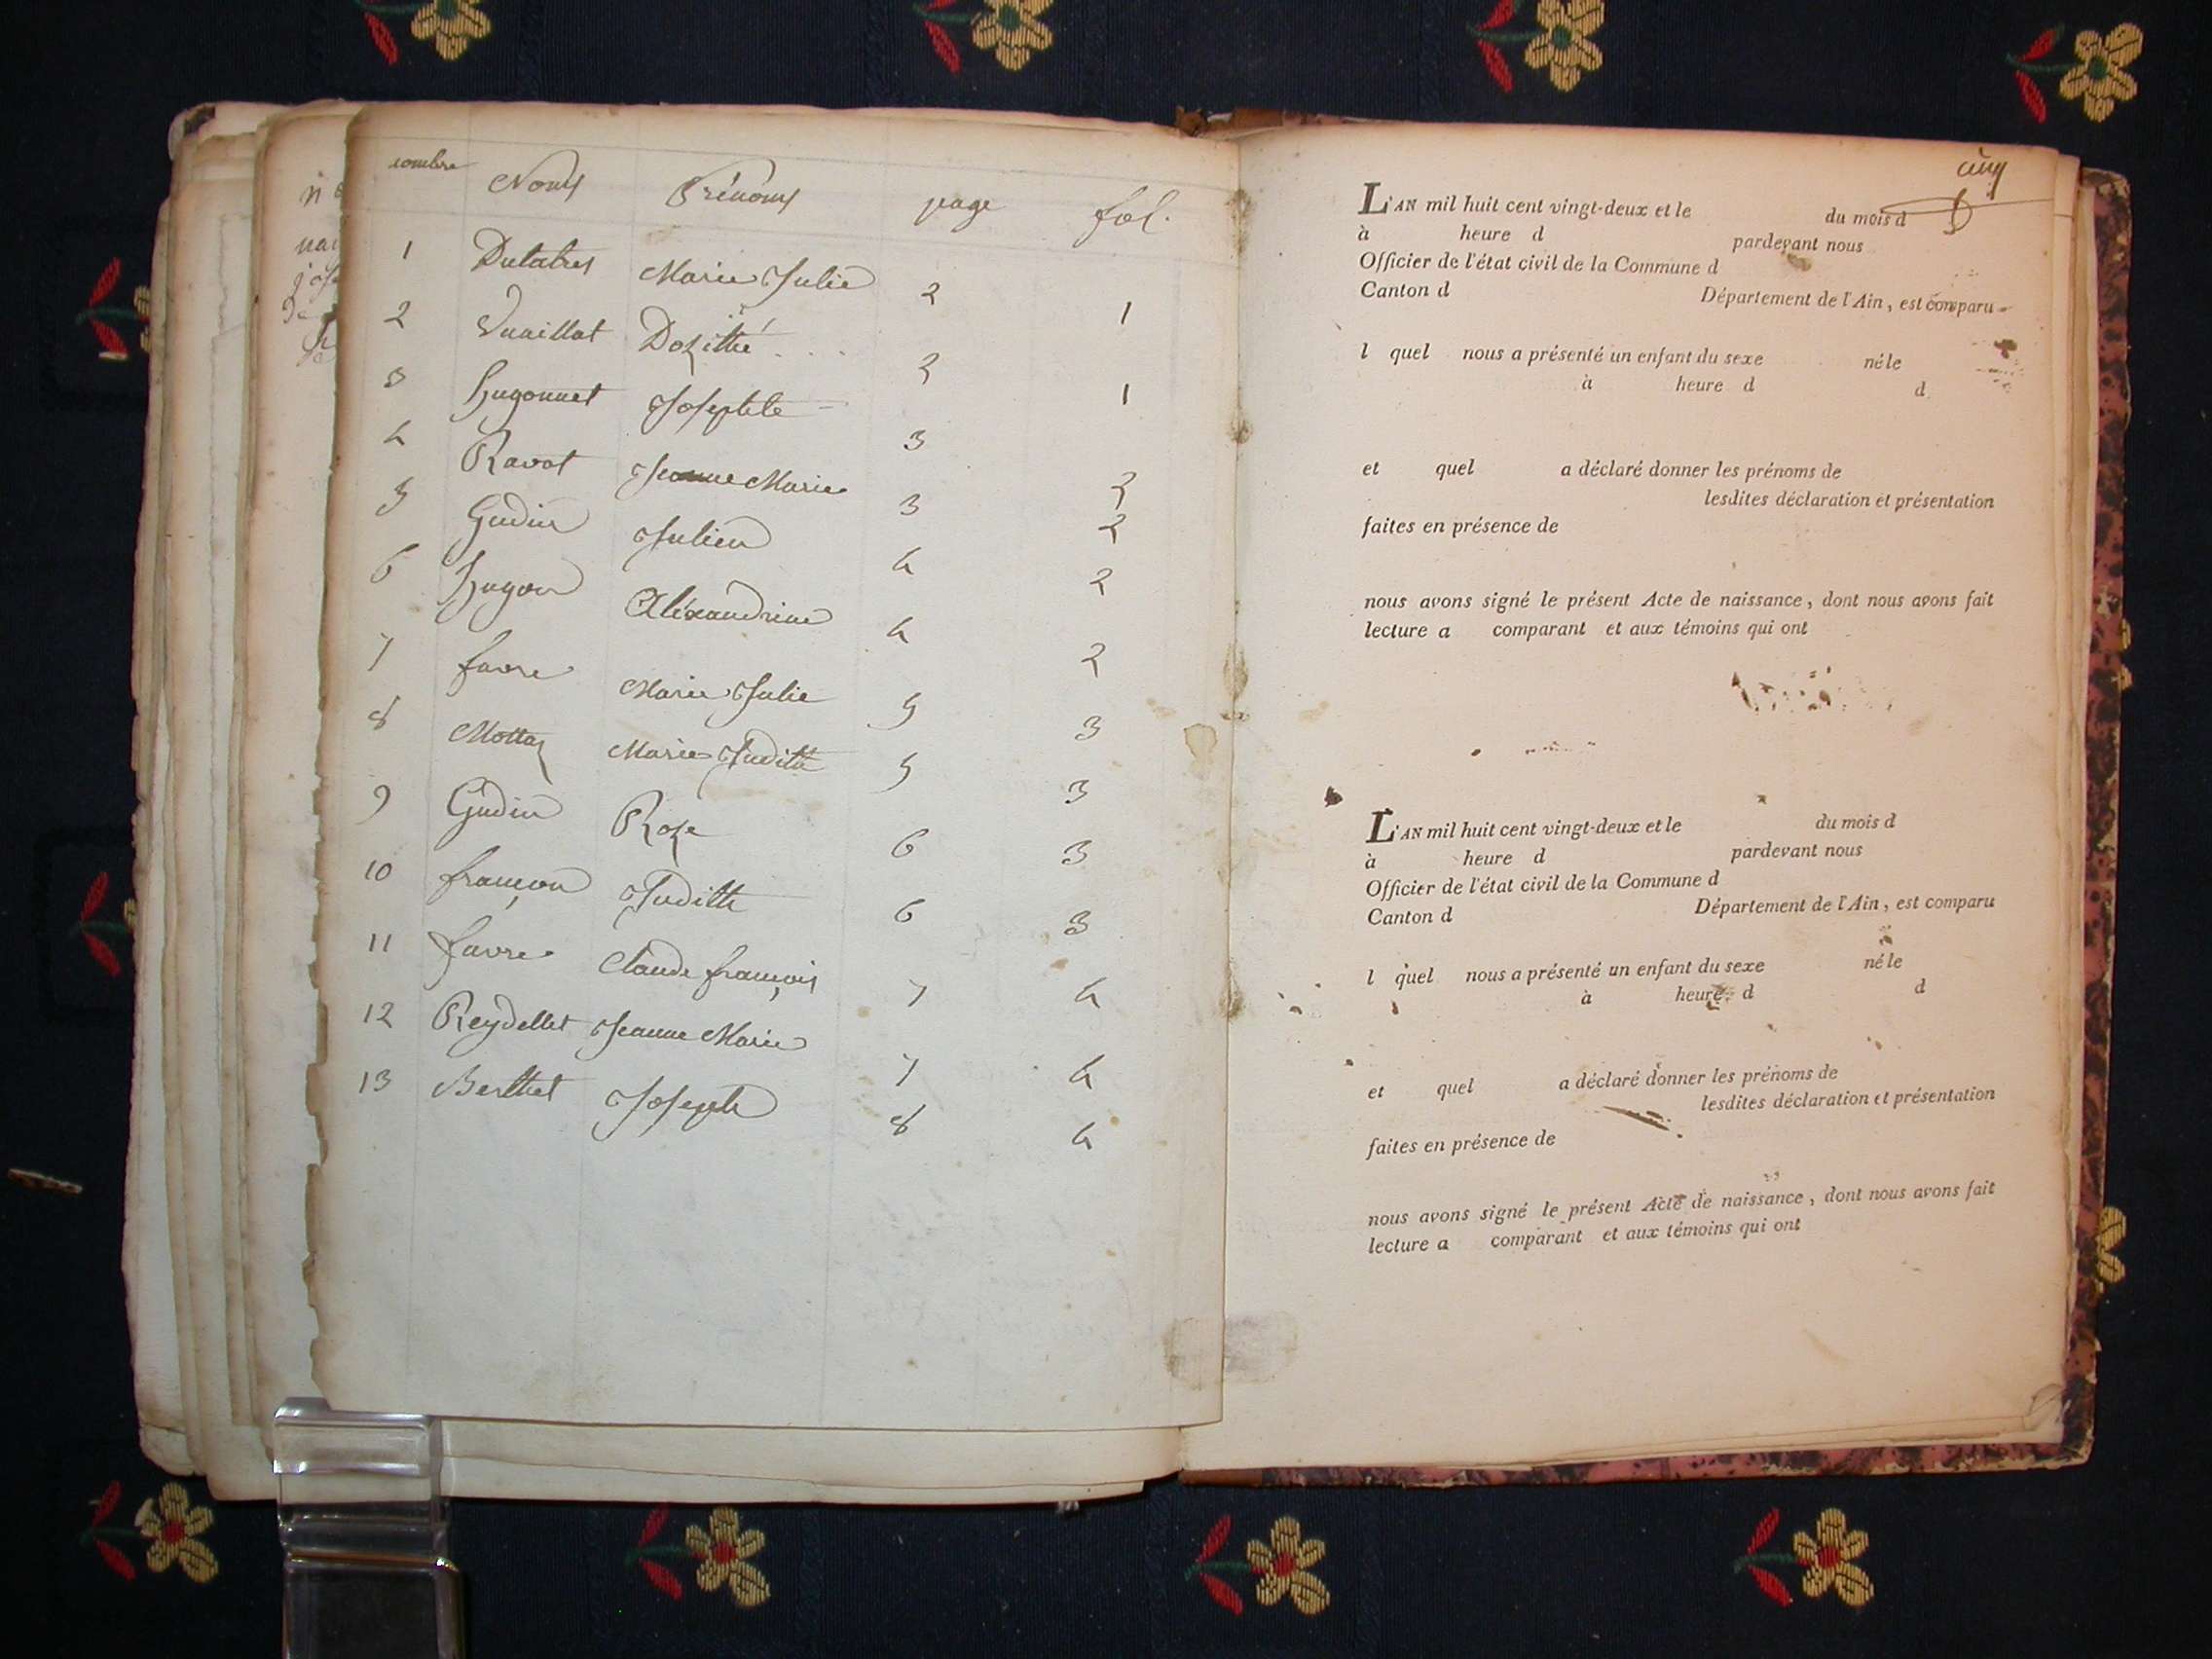 nombre Noms Prénoms page fol.
1 Dutabes Marie Julie 2 1
2 Vuaillat Dozithé 2 1
3 Hugonnet Josephte 3 2
4 Ravot Jeanne Marie 3 2
5 Gudin Julien 4 2
6 Hugon Aléxandrine 4 2
7 favre Marie Julie 5 3
8 Mottaz Marie Judith 5 3
9 Gudin Roze 6 3
10 françon Judith 6 3
11 favre Claude françois 7 4
12 Reydellet Jeanne Marie 7 4
13 Berthet Joseph 8 4
cinq
L'AN mil huit cent vingt-deux et le du mois d
à heure d pardevant nous
Officier de l'état civil de la Commune d
Canton d Département de l'Ain, est comparu
l quel nous a présenté un enfant du sexe né le
à heure d d
et quel a déclaré donner les prénoms de
lesdites déclaration et présentation
faites en présence de
nous avons signé le présent Acte de naissance, dont nous avons fait
lecture a comparant et aux témoins qui ont
L'AN mil huit cent vingt-deux et le du mois d
à heure d pardevant nous
Officier de l'état civil de la Commune d
Canton d Département de l'Ain, est comparu
l quel nous a présenté un enfant du sexe né le
à heure d d
et quel a déclaré donner les prénoms de
lesdites déclaration et présentation
faites en présence de
nous avons signé le présent Acte de naissance, dont nous avons fait
lecture a comparant et aux témoins qui ont